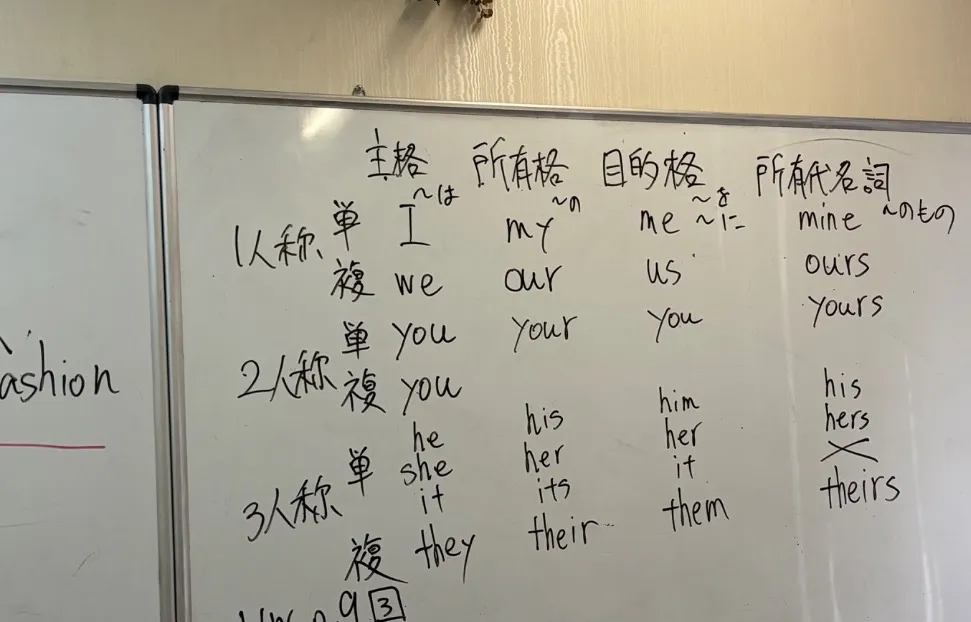 主格 所有格 目的格 所有代名詞
~は ~の ~を ~に ~のもの
1人称 単 I my me mine
複 we our us ours
2人称 単 you your you yours
複 you
3人称 単 he his him his
she her her hers
it its it ×
複 they their them theirs
ashion
9 3